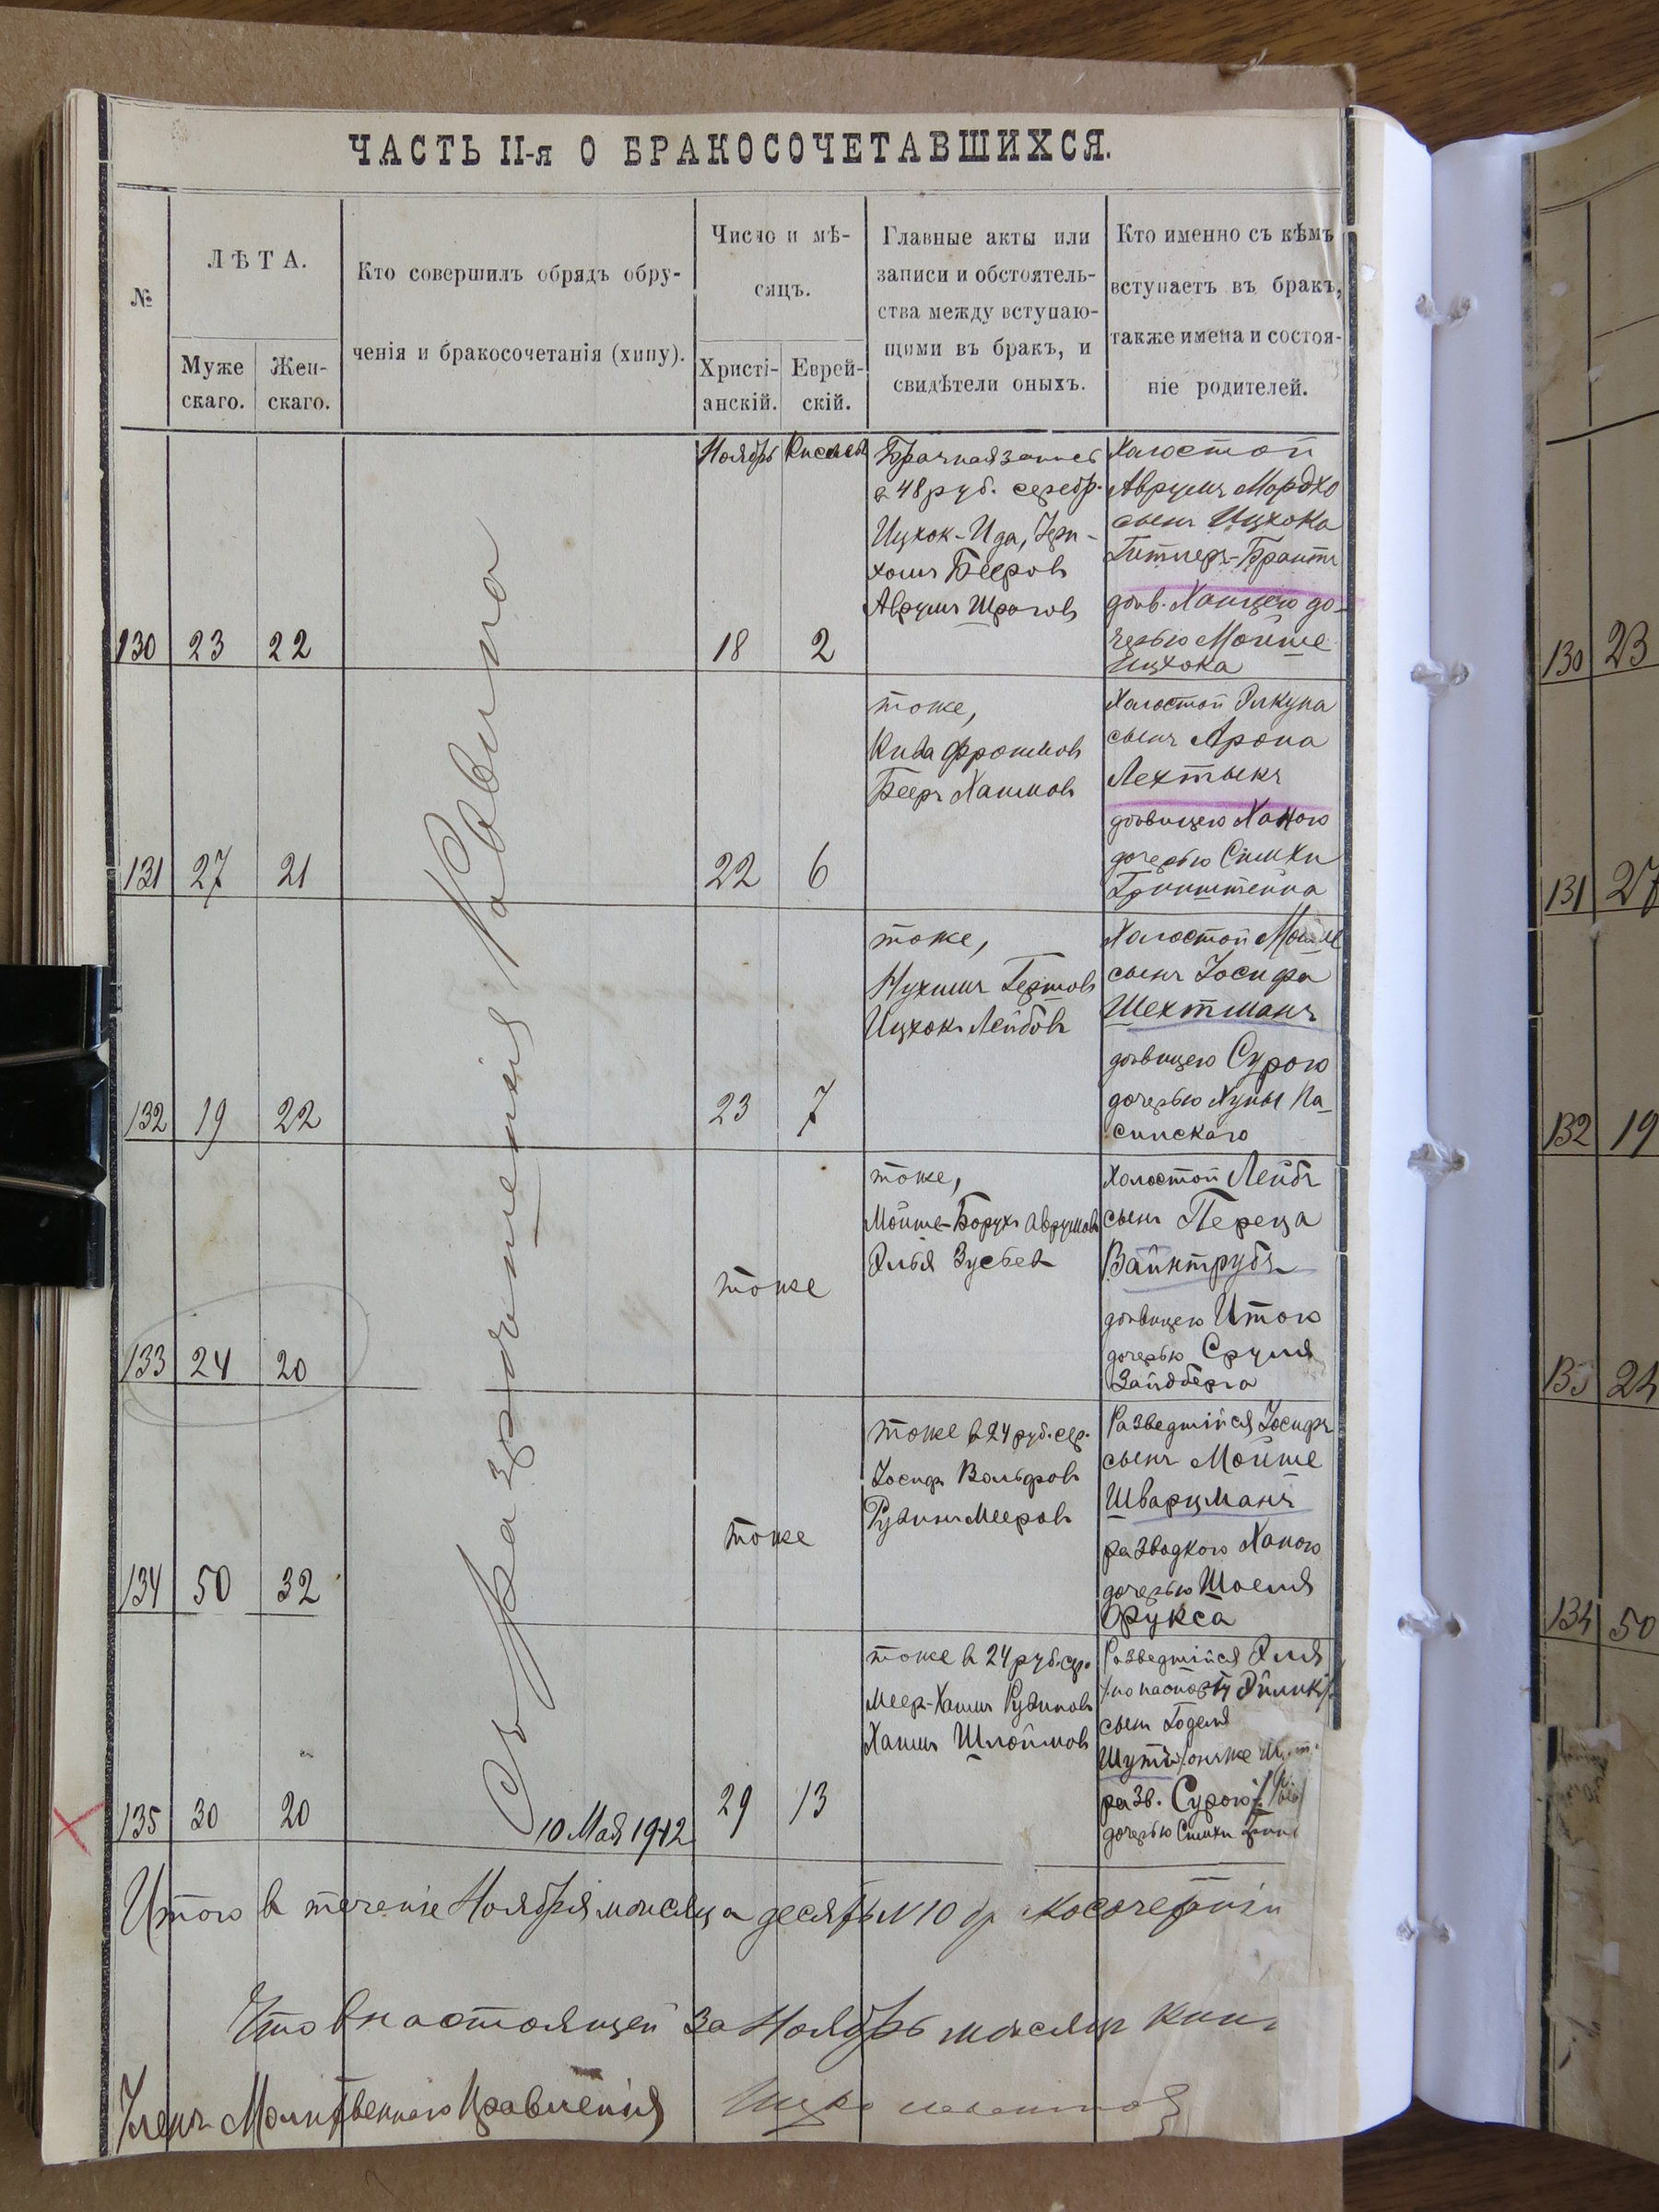 ЧАСТЬ II-я О БРАКОСОЧЕТАВШИХСЯ.
№
ЛѢТА.
Муже
скаго.
Жен-
скаго.
Кто совершилъ обрядъ обру-
ченія и бракосочетанія (хипу).
Число и мѣ-
сяцъ.
Христі-
анскій.
Еврей-
скій.
Главные акты или
записи и обстоятель-
ства между вступаю-
щими въ бракъ, и
свидѣтели оныхъ.
Кто именно съ кѣмъ
вступаетъ въ бракъ,
также имена и состоя-
ніе родителей.
Съ разрешенія Равина
10 Мая 1912
130 23 22
Ноябрь Кислевъ
18 2
Брачная запись
в 48 руб. серебр.
Ицхок-Ида,
Бееров
Аврумъ Шрагов
Холостой
Аврумъ Мордхо
сынъ Ицхока
Гитлеръ-Брантъ
дѣв. Ханцею до-
черью Мойше
Ицхока
131 27 21
22 6
тоже,
Кива Фроимов
Бееръ Хаимов
Холостой Элкуна
сынъ Арона
Лехтыкъ
дѣвицею Ханою
дочерью Симхи
Гринштейна
132 19 22
23 7
тоже,
Нухимъ Гершов
Ицхокъ Лейбов
Холостой Мойше
сынъ Іосифа
Шехтманъ
дѣвицею Сурою
дочерью Хуны Ра-
синскаго
133 24 20
тоже
тоже,
Мойше-Борухъ Аврумов
Элья Зусьев
Холостой Лейбъ
сынъ Переца
Вайнтрубъ
дѣвицею Итою
дочерью Сруля
Зайдберга
134 50 32
тоже
тоже в 24 руб. сер.
Іосифъ Вольфов
Рувинъ Мееров
Разведшійся Іосифъ
сынъ Мойше
Шварцманъ
разводкою Ханою
дочерью Шоеля
Фукса
135 30 20
29 13
тоже в 24 руб. ср.
Меер-Хаимъ Рувинов
Хаимъ Шлоймов
Разведшійся Эля
/по паспорту
сынъ Годеля
Шутъ/онже
разв. Сурою
дочерью Симхи
Итого в теченіе Ноября мѣсяца десять N 10 бракосочетаній
Что в настоящей за Ноябрь мѣсяцъ
Членъ Молитвеннаго Правленія
130 23
131 27
132 19
133 24
134 50